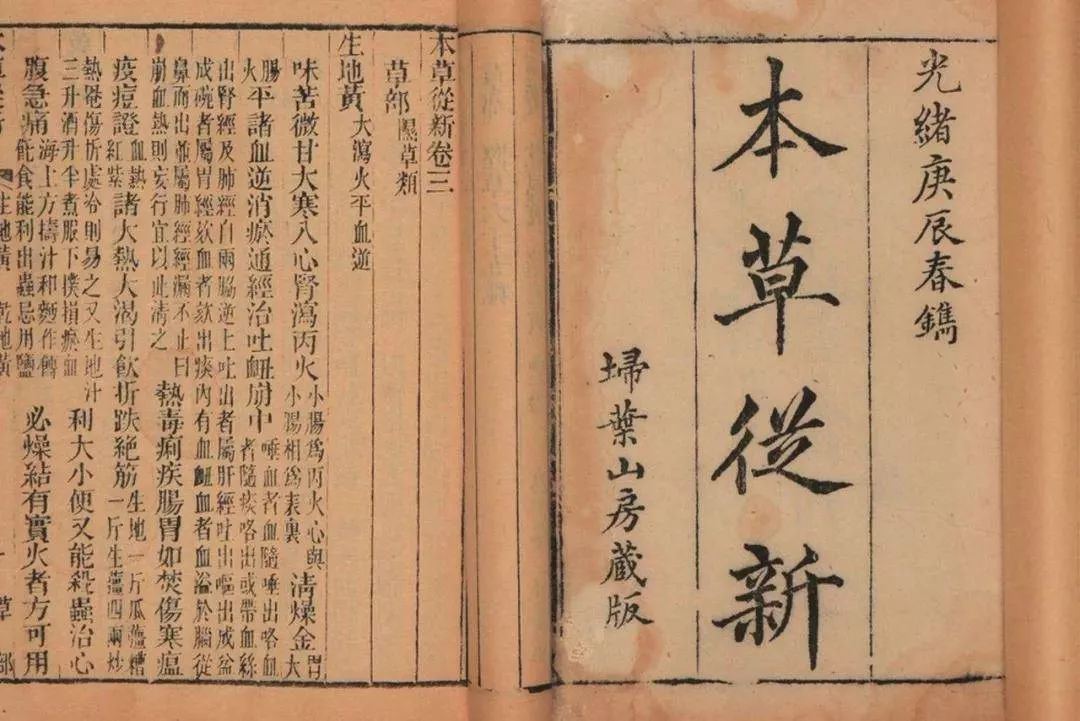 光緒庚辰春鐫
本草從新
埽葉山房藏版
本草從新卷三
草部 隰草類
生地黃 大瀉火平血逆
味苦微甘大寒入心腎瀉丙火 小腸爲丙火心與小腸相爲表裏 清燥金 胃大
腸火 平諸血逆消瘀通經治吐衄崩中 唾血者血隨唾出咯血者隨痰咯出或帶血絲
出腎經及肺經自兩脇逆上吐出者屬肝經吐出嘔出成盆
成碗者屬胃經欬血者欬出痰內有血衄血者血溢於腦從
鼻而出並屬肺經經漏不止曰崩血熱則妄行宜以此清之 熱毒痢疾腸胃如焚傷寒瘟
疫痘證 血熱紅紫 諸大熱大渴引飲折跌絕筋 生地一斤瓜薑糟一斤生薑四兩炒
熱罨傷折處冷則易之又生地汁三升酒升半煮服下撲損瘀血 利大小便又能殺蟲治心
腹急痛 海上方擣汁和麵作餺飥食能利出蟲忌用鹽 必燥結有實火者方可用
生地黃 乾地黃 一 草部